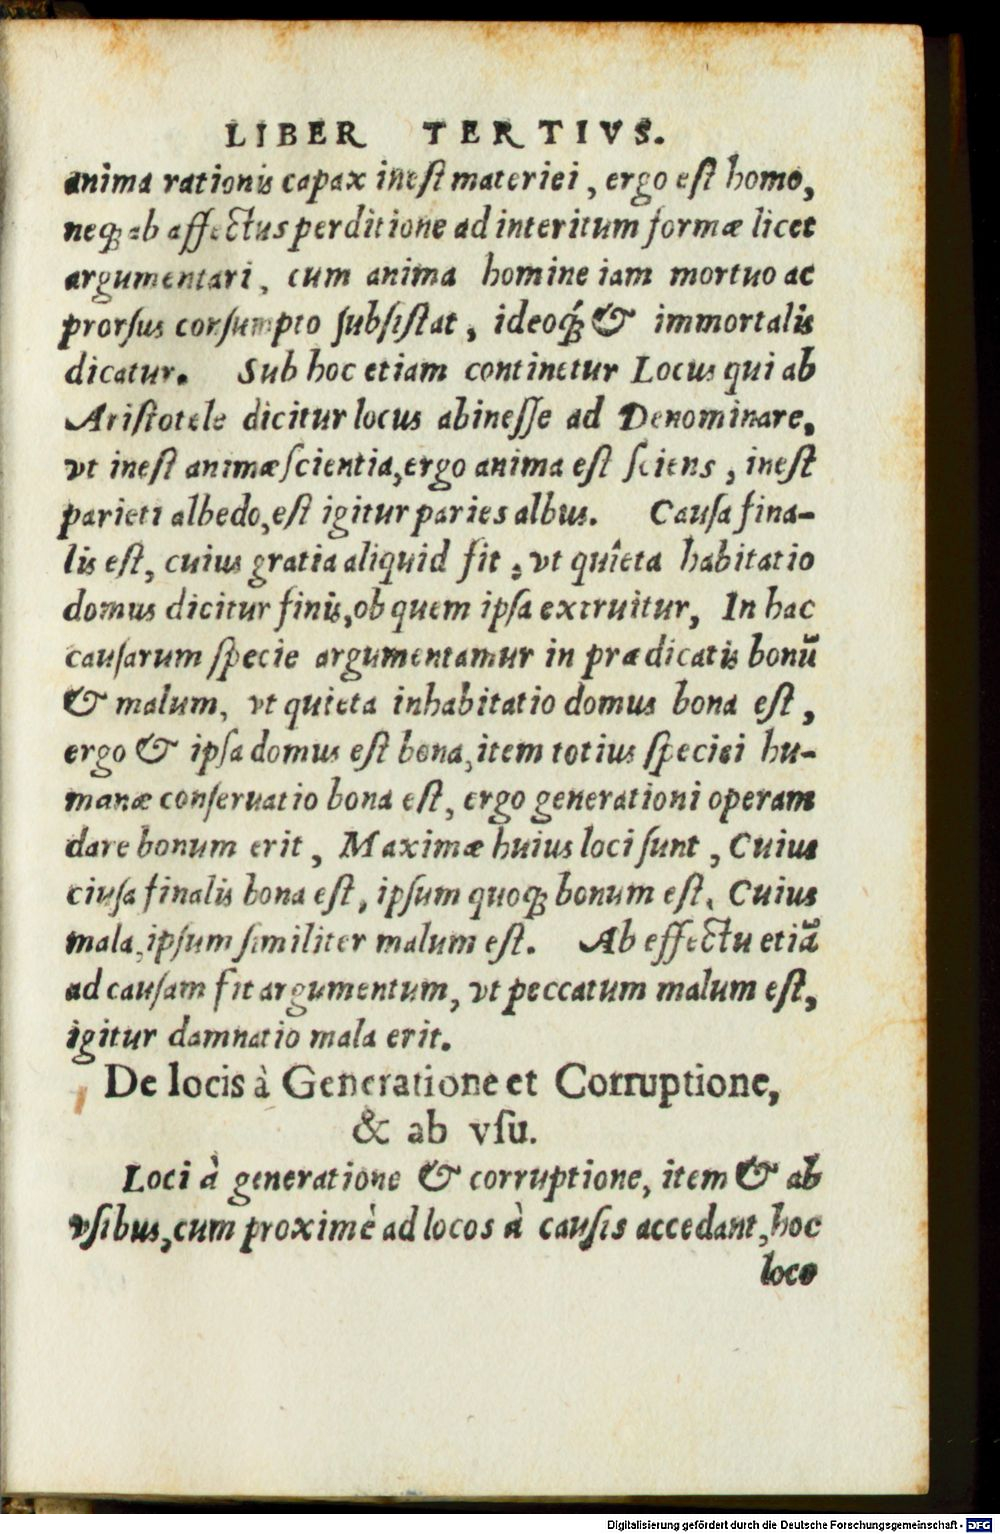 LIBER TERTIVS.
anima rationis capax inest materiei, ergo est homo,
neq; ab affectus perditione ad interitum formæ licet
argumentari, cum anima homine iam mortuo ac
prorſus conſumpto ſubſiſtat, ideoq́; & immortalis
dicatur. Sub hoc etiam continetur Locus qui ab
Ariſtotele dicitur locus ab ineſſe ad Denominare,
vt ineſt animæ ſcientia, ergo anima eſt ſciens, ineſt
parieti albedo, eſt igitur paries albus. Cauſa fina-
lis eſt, cuius gratia aliquid fit: vt quîeta habitatio
domus dicitur finis, ob quem ipſa extruitur, In hac
cauſarum ſpecie argumentamur in prædicatis bonũ
& malum, vt quieta inhabitatio domus bona eſt,
ergo & ipſa domus eſt bona, item totius ſpeciei hu-
manæ conſeruatio bona eſt, ergo generationi operam
dare bonum erit, Maximæ huius loci ſunt, Cuius
ciuſa finalis bona eſt, ipſum quoq; bonum eſt, Cuius
mala, ipſum ſimiliter malum eſt. Ab effectu etiã
ad cauſam fit argumentum, vt peccatum malum eſt,
igitur damnatio mala erit.
De locis à Generatione et Corruptione,
& ab vſu.
Loci à generatione & corruptione, item & ab
vſibus, cum proximè ad locos à cauſis accedant, hoc
loco
Digitalisierung gefördert durch die Deutsche Forschungsgemeinschaft - DFG